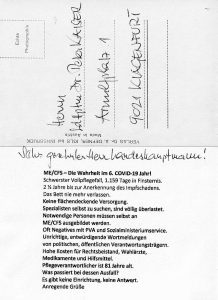 Echte
Photographie
VERLAG DR. A. DEFNER, IGLS BEI INNSBRUCK
Made in Austria
Herrn
Dr. Peter KAISER
Arnulfplatz 1
9021 KLAGENFURT
Sehr geehrter Herr Landeshauptmann!
ME/CFS – Die Wahrheit im 6. COVID-19 Jahr!
Schwerster Vollpflegefall, 1.159 Tage in Finsternis.
2 ¾ Jahre bis zur Anerkennung des Impfschadens.
Das Bett nie mehr verlassen.
Keine flächendeckende Versorgung.
Spezialisten selbst zu suchen, sind völlig überlastet.
Notwendige Personen müssen selbst an
ME/CFS ausgebildet werden.
Oft Negatives mit PVA und Sozialministeriumservice.
Unrichtige, entwürdigende Wortmeldungen
von politischen, öffentlichen Verantwortungsträgern.
Hohe Kosten für Rechtsbeistand, Wahlärzte,
Medikamente und Hilfsmittel.
Pflegeverantwortlicher ist 81 Jahre alt.
Was passiert bei dessen Ausfall?
Es gibt keine Einrichtung, keine Antwort.
Anregende Grüße